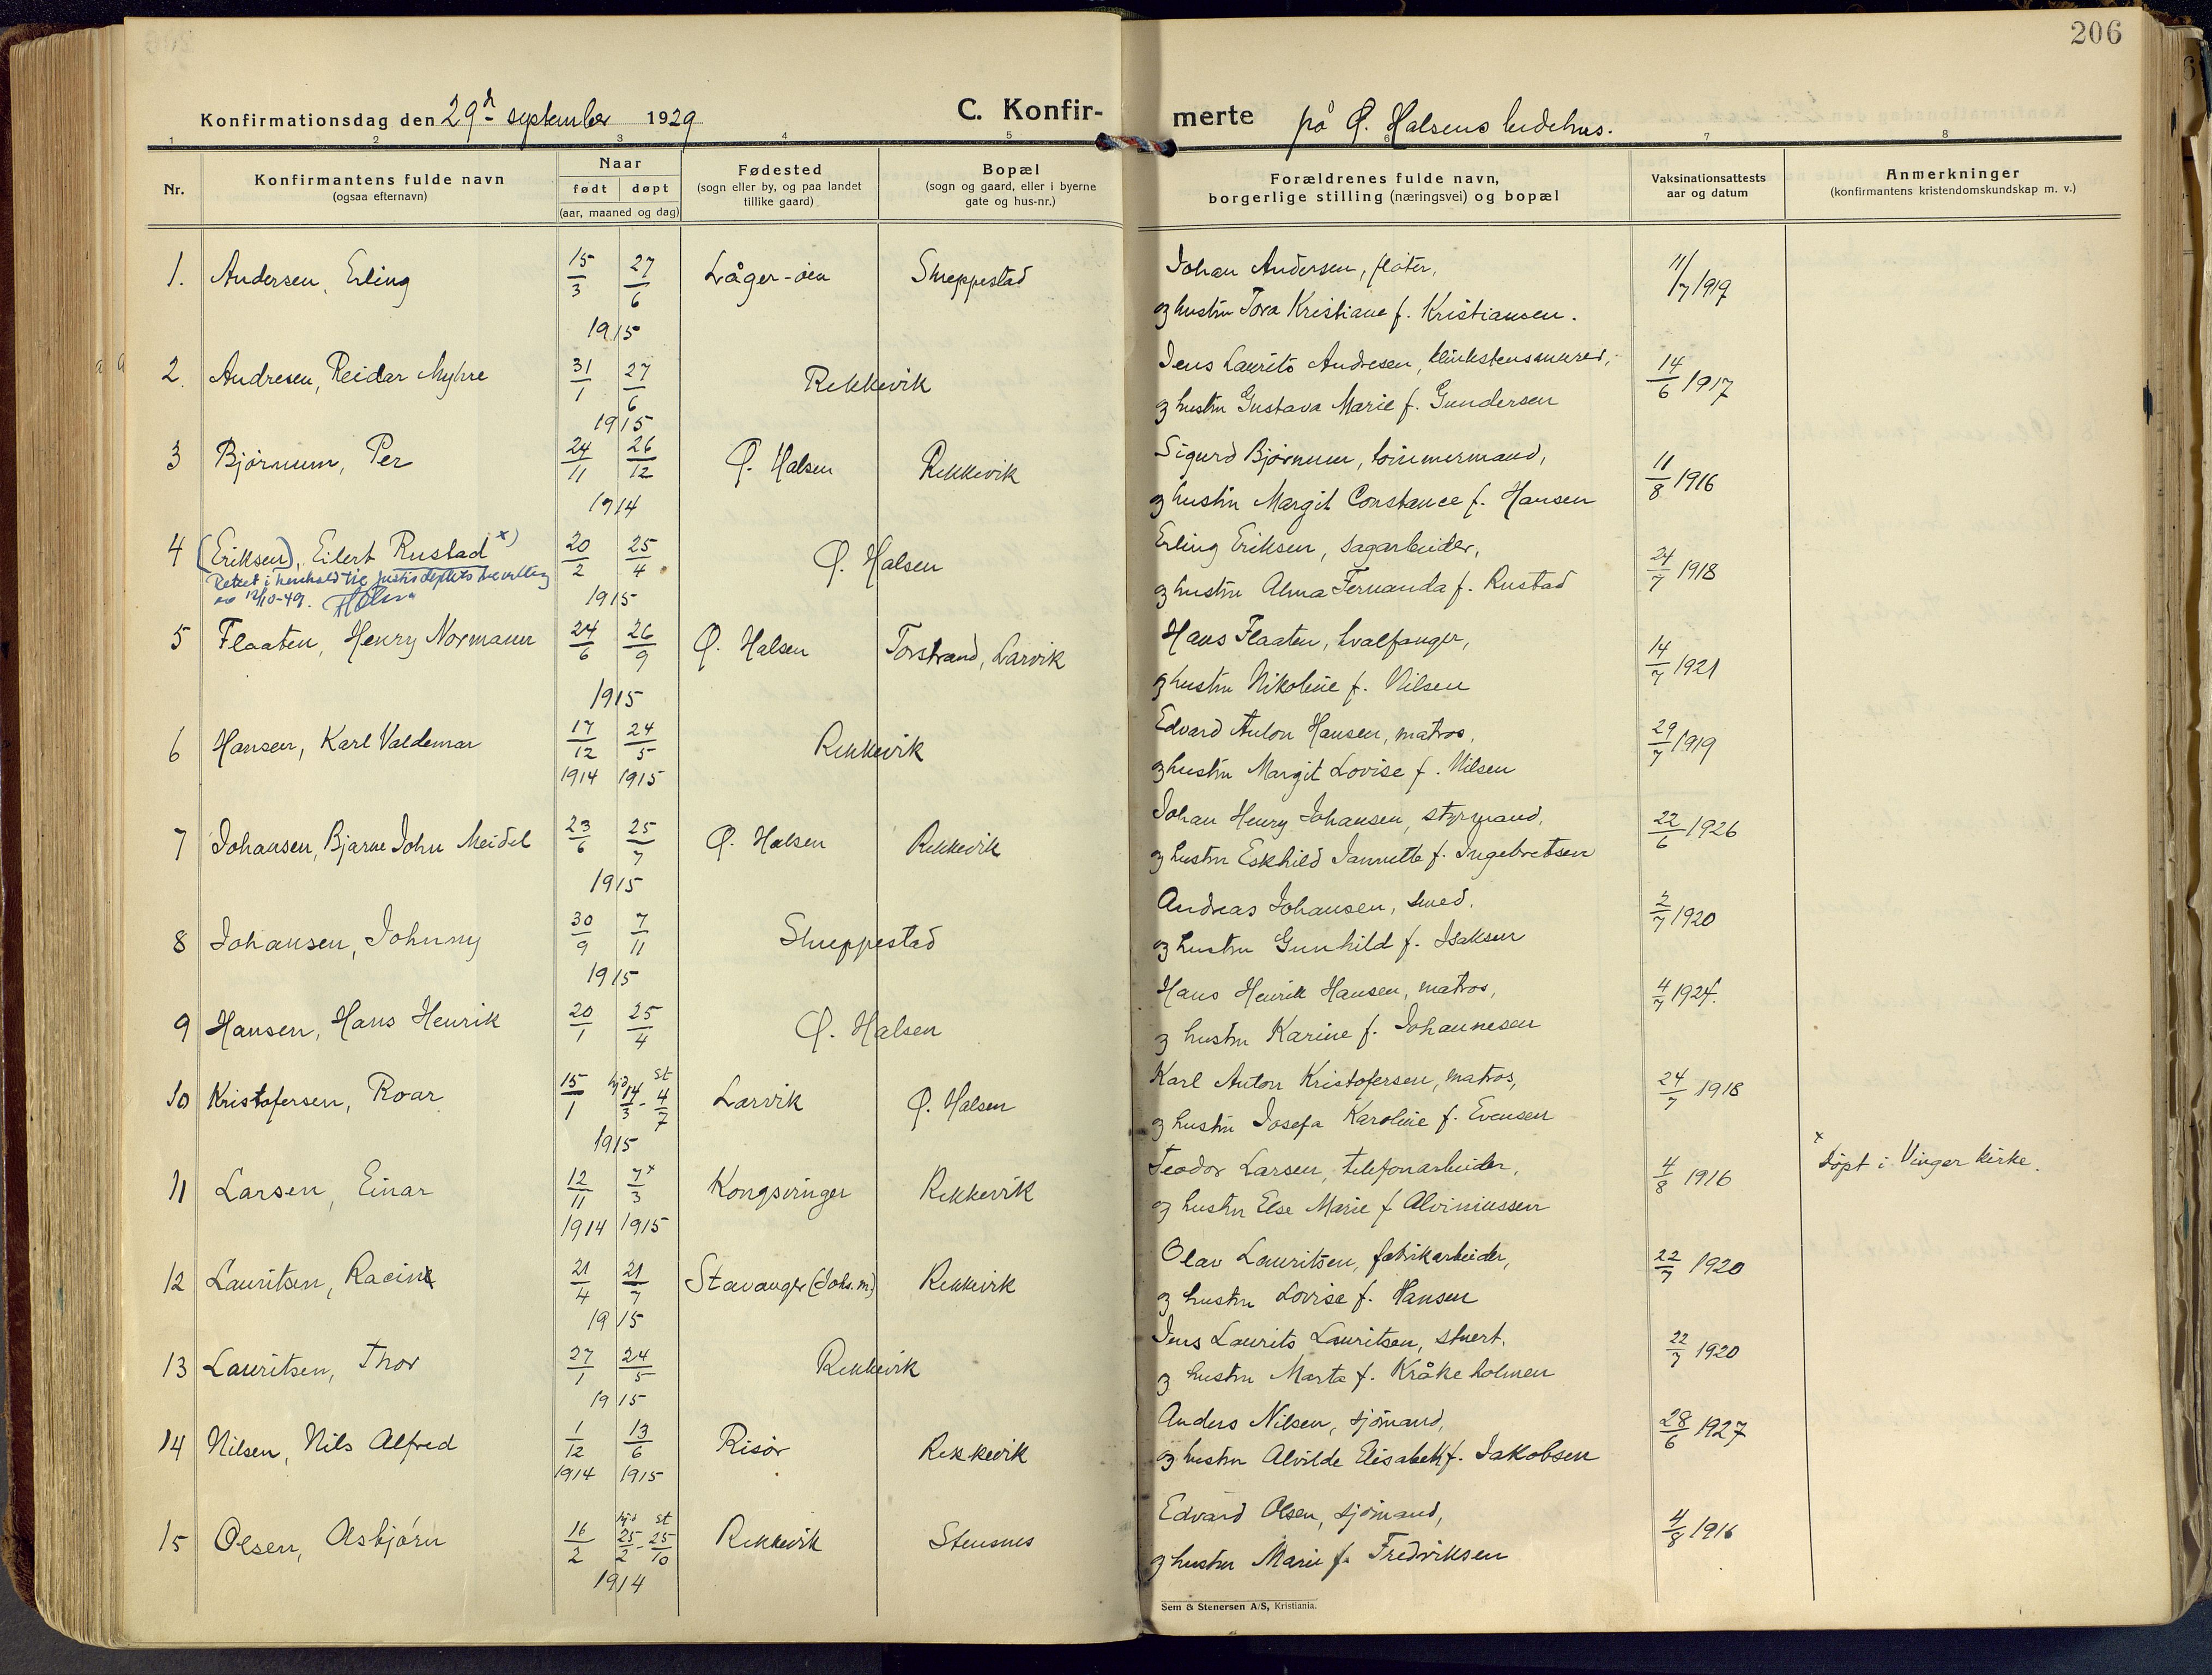 206
Konfirmationsdag den 29de september 1929 C. Konfir-merte på Ø. Halsens bedehus.
1 2 3 4 5 7 8
Nr.
Konfirmantens fulde navn
(ogsaa efternavn)
Naar
født døpt
(aar, maaned og dag)
Fødested
(sogn eller by, og paa landet
tillike gaard)
Bopæl
(sogn og gaard, eller i byerne
gate og hus-nr.)
Forældrenes fulde navn,
borgerlige stilling (næringsvei) og bopæl
Vaksinationsattests
aar og datum
Anmerkninger
(konfirmantens kristendomskundskap m. v.)
1. Andersen, Erling 15/3 27/6 1915 Låger-øen Skreppestad
Johan Andersen, fløter,
og hustru Tora Kristiane f. Kristiansen.
11/7 1919
2. Andresen, Reidar Myhre 31/1 27/6 1915 Rekkevik
Jens Laurits Andresen, klinkstensmurer,
og hustru Gustava Marie f. Gundersen
14/6 1917
3 Bjørnum, Per 24/11 26/12 1914 Ø. Halsen Rekkevik
Sigurd Bjørnum, tømmermand,
og hustru Margit Constance f. Hansen
11/8 1916
4 (Eriksen), Eilert Rustad x) 20/2 25/4 1915 Ø. Halsen
Rettet i henhold til justisdeptets bevilling
av 12/10-49. Holm
Erling Eriksen, sagarbeider,
og hustru Alma Fernanda f. Rustad
24/7 1918
5 Flaaten, Henry Normann 24/6 26/9 1915 Ø. Halsen Torstrand, Larvik
Hans Flaaten, hvalfanger,
og hustru Nikoline f. Nilsen
14/7 1921
6 Hansen, Karl Valdemar 17/12 1914 24/5 1915 Rekkevik
Edvard Anton Hansen, matros,
og hustru Margit Lovise f. Nilsen
29/7 1919
7 Johansen, Bjarne John Meidel 23/6 25/7 1915 Ø. Halsen Rekkevik
Johan Henry Johansen, styrmand,
og hustru Eskhild Jannette f. Ingebretsen
22/6 1926
8 Johansen, Johnny 30/9 7/11 1915 Skreppestad
Andreas Johansen, smed,
og hustru Gunhild f. Isaksen
2/7 1920
9 Hansen, Hans Henrik 20/1 25/4 Ø. Halsen
Hans Henrik Hansen, matros,
og hustru Karine f. Johannesen
4/7 1924.
10 Kristofersen, Roar 15/1 hjd 14/3 - st 4/7 1915 Larvik Ø. Halsen
Karl Anton Kristofersen, matros,
og hustru Josefa Karoline f. Evensen
24/7 1918
11 Larsen, Einar 12/11 1914 7/3 x 1915 Kongsvinger Rekkevik
Teodor Larsen, telefonarbeider,
og hustru Else Marie f. Alviniussen
4/8 1916
x døpt i Vinger kirke.
12 Lauritsen, Racin 21/4 21/7 1915 Stavanger (Johs. m.) Rekkevik
Olav Lauritsen, fabrikarbeider,
og hustru Lovise f. Hansen
22/7 1920
13 Lauritsen, Thor 27/1 24/5 1915 Rekkevik
Jens Laurits Lauritsen, stuert,
og hustru Marta f. Kråkeholmen
22/7 1920
14 Nilsen, Nils Alfred 1/12 1914 13/6 1915 Risør Rekkevik
Anders Nilsen, sjømand,
og hustru Alvilde Elisabeth f. Jakobsen
28/6 1927
15 Olsen, Asbjørn 16/2 hjd 25/2 - st 25/10 1914 Rekkevik Stensnes
Edvard Olsen, sjømand,
og hustru Marie f. Fredriksen
4/8 1916
Sem & Stenersen A/S, Kristiania.